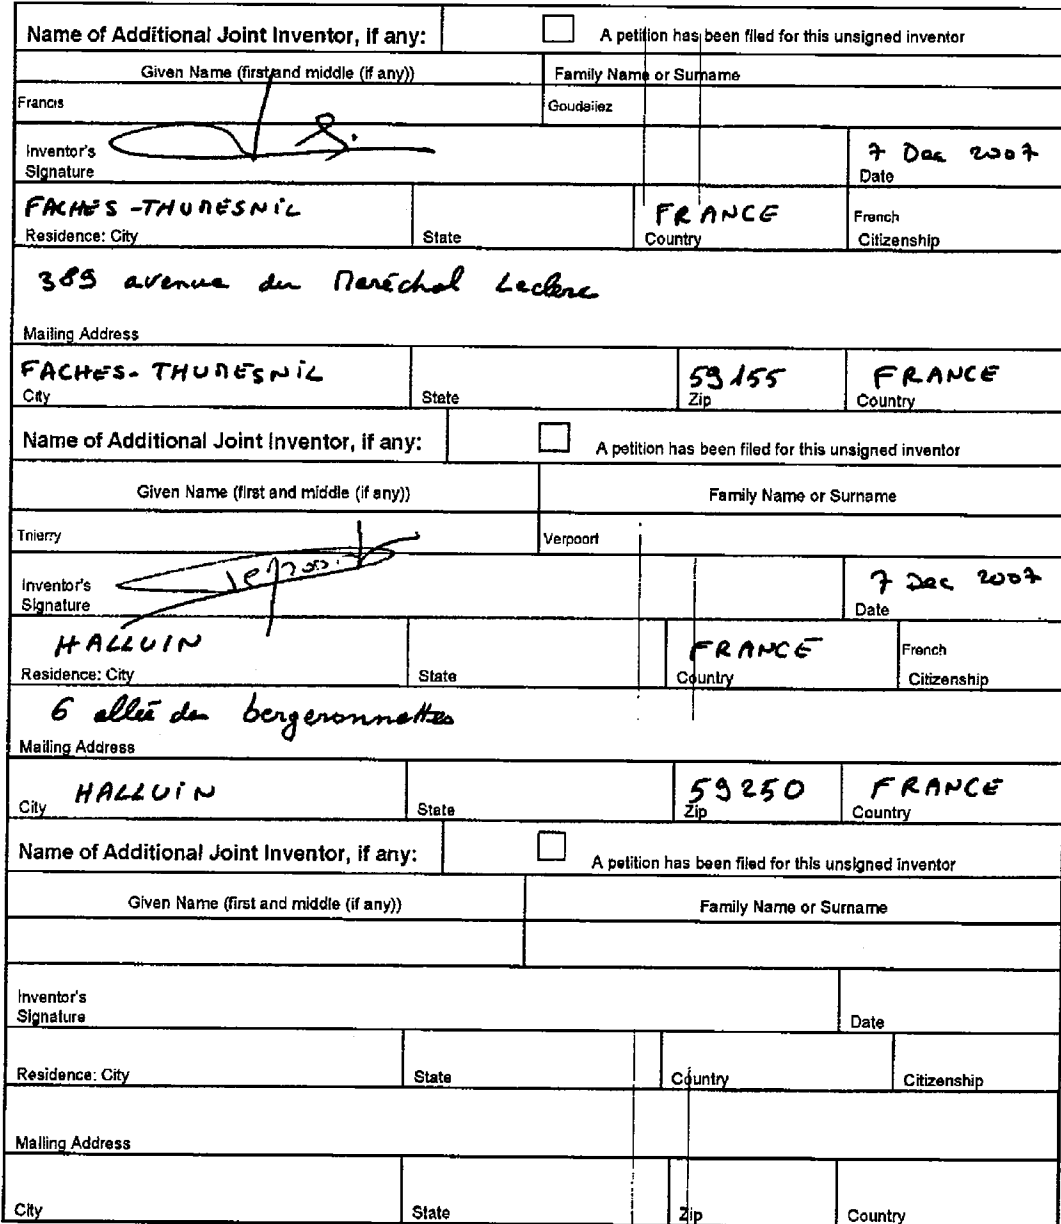 Name of Additional Joint Inventor, if any: A petition has been filed for this unsigned inventor
Given Name (first and middle (if any)) Family Name or Surname
Francis Goudaliez
Inventor's
Signature
7 Dec 2007
Date
FACHES-THUMESNIL FRANCE French
Residence: City State Country Citizenship
389 avenue du Maréchal Leclerc
Mailing Address
FACHES-THUMESNIL 59155 FRANCE
City State Zip Country
Name of Additional Joint Inventor, if any: A petition has been filed for this unsigned inventor
Given Name (first and middle (if any)) Family Name or Surname
Thierry Verpoort
Inventor's
Signature
7 Dec 2007
Date
HALLUIN FRANCE French
Residence: City State Country Citizenship
6 allée des bergeronnettes
Mailing Address
HALLUIN 59250 FRANCE
City State Zip Country
Name of Additional Joint Inventor, if any: A petition has been filed for this unsigned inventor
Given Name (first and middle (if any)) Family Name or Surname
Inventor's
Signature Date
Residence: City State Country Citizenship
Mailing Address
City State Zip Country